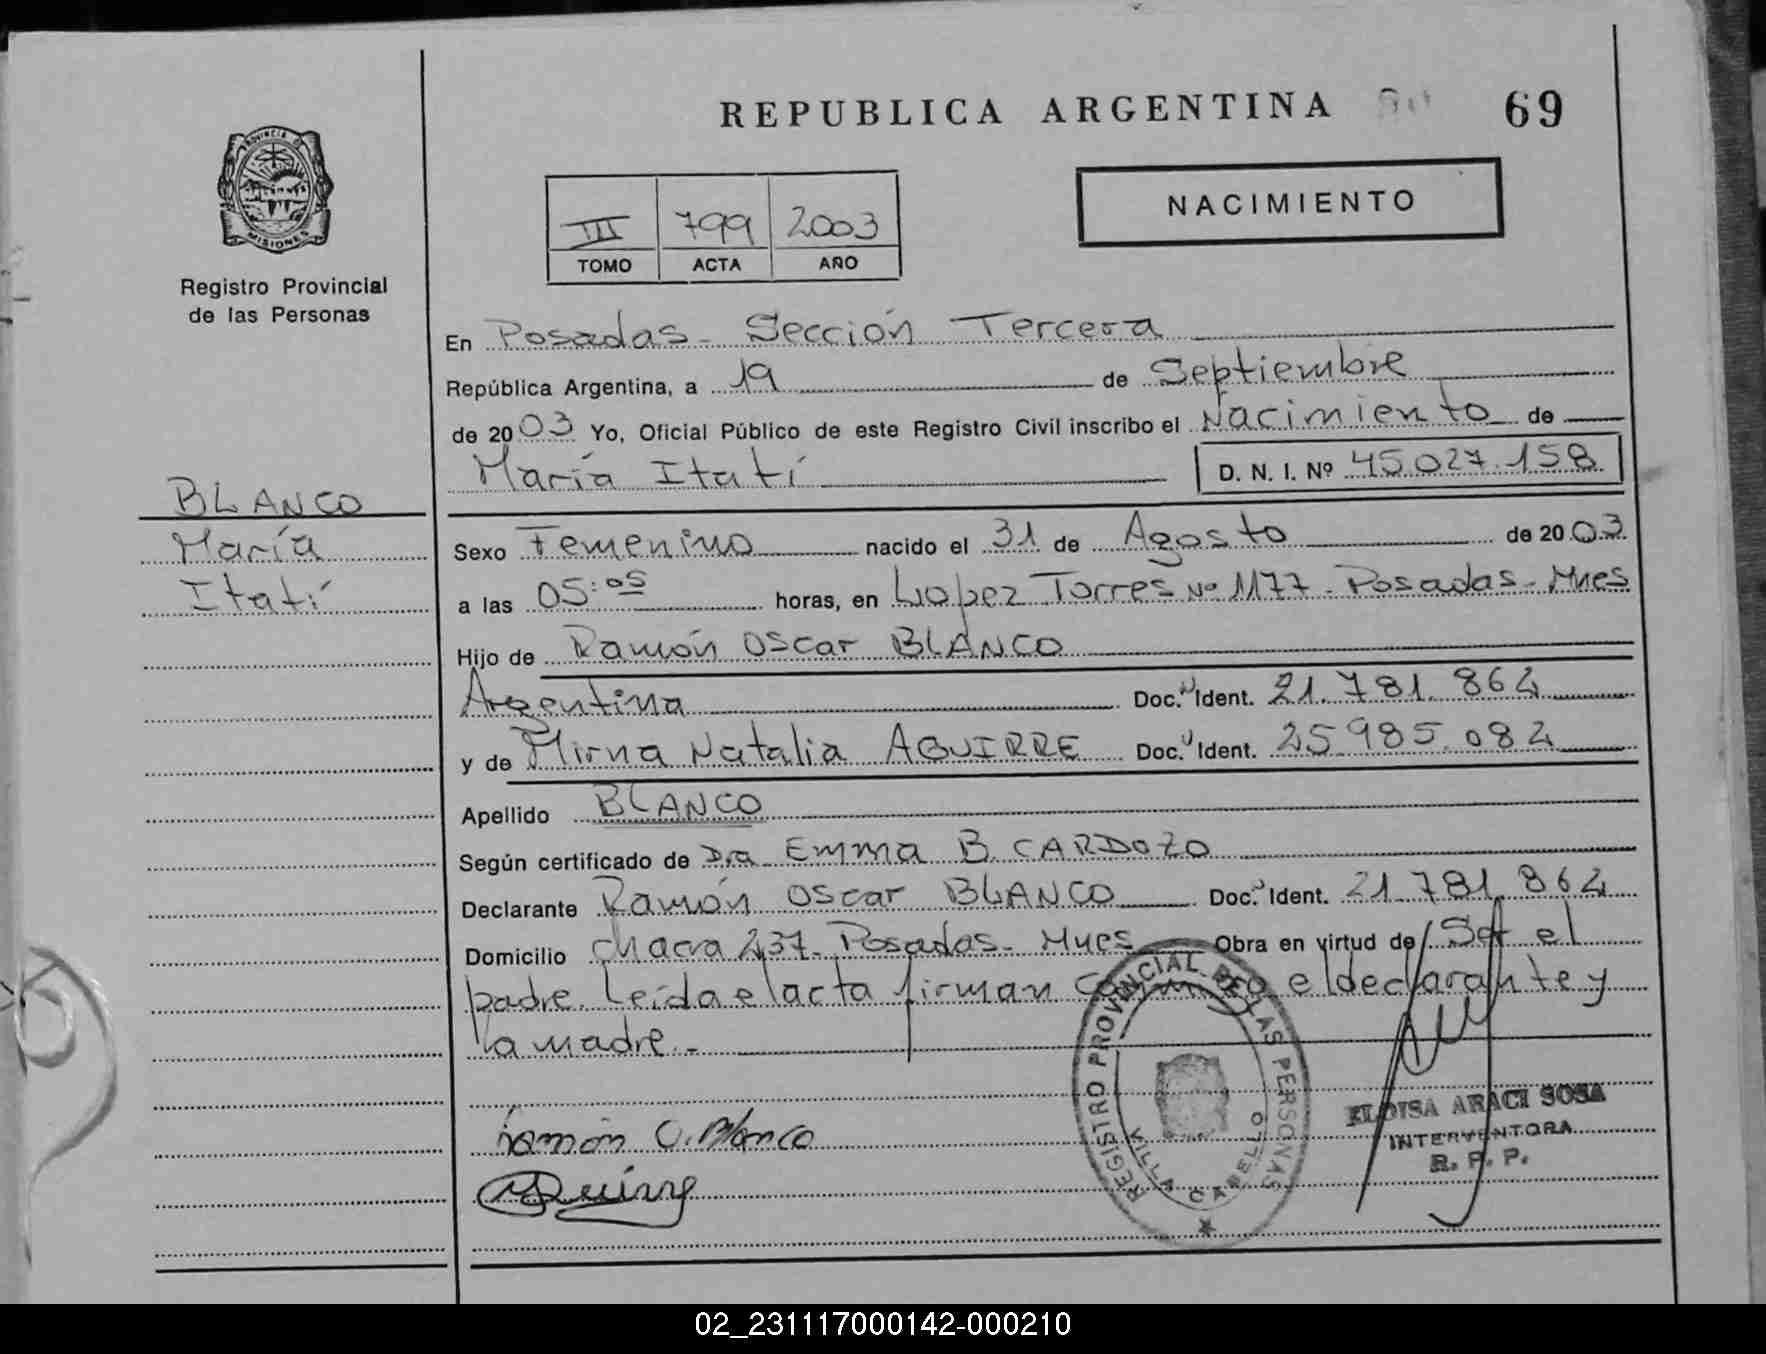 REPUBLICA ARGENTINA 69
PROVINCIA
MISIONES
Registro Provincial
de las Personas
III 799 2003
TOMO ACTA AÑO
NACIMIENTO
En Posadas - Sección Tercera
República Argentina, a 19 de Septiembre
de 2003 Yo, Oficial Público de este Registro Civil inscribo el Nacimiento de
María Itatí D. N. I. Nº 45.027.158
BLANCO
María
Itatí
Sexo Femenino nacido el 31 de Agosto de 2003
a las 05:05 horas, en López Torres Nº 1177 - Posadas - Mnes
Hijo de Ramón Oscar BLANCO
Argentina Doc. Ident. 21.781.864
y de Mirna Natalia AGUIRRE Doc. Ident. 25.985.084
Apellido BLANCO
Según certificado de Dra Emma B. CARDOZO
Declarante Ramón Oscar BLANCO Doc. Ident. 21.781.864
Domicilio Chacra 237 - Posadas - Mnes Obra en virtud de Ser el
padre. Leída el acta firman conmigo el declarante y
la madre.-
Ramón O. Blanco
REGISTRO PROVINCIAL DE LAS PERSONAS
VILLA CABELLO
ELOISA ARACI SOSA
INTERVENTORA
R. P. P.
02_231117000142-000210